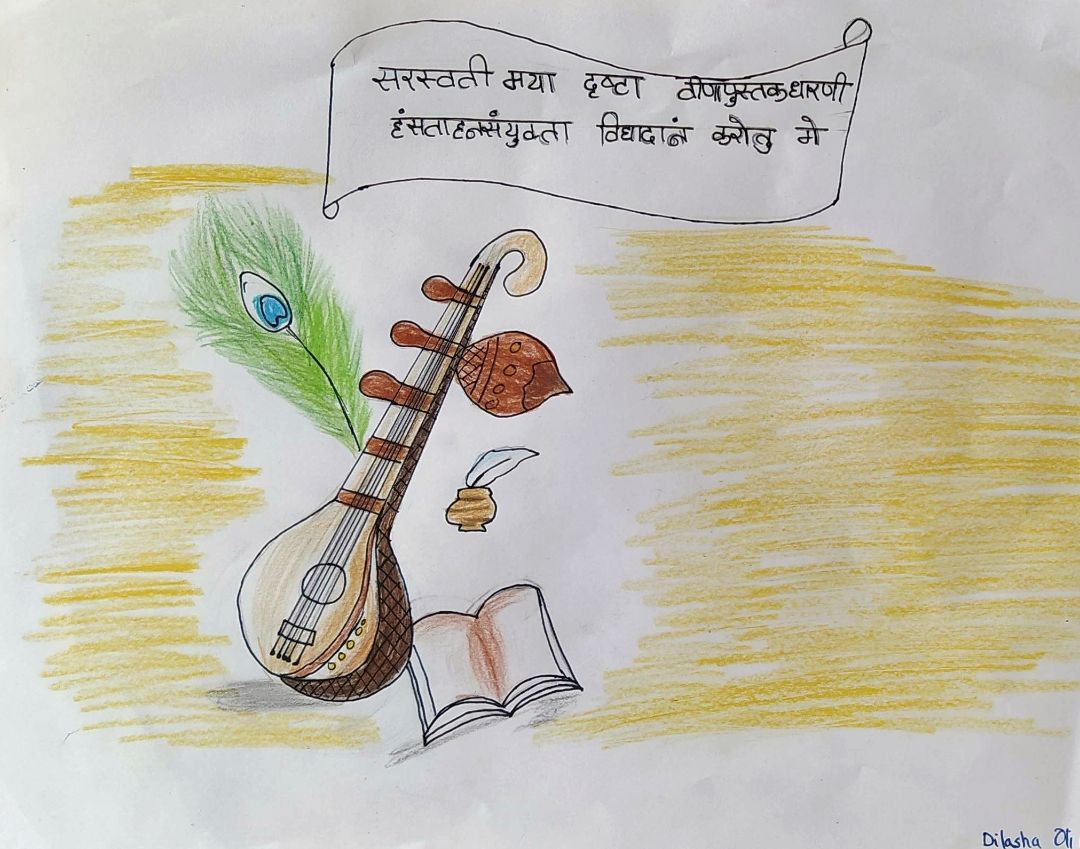 सरस्वती मया दृष्टा वीणापुस्तकधारणी
हंसताहनसंयुक्ता विद्यादानं करोतु मे
Dilasha Oli